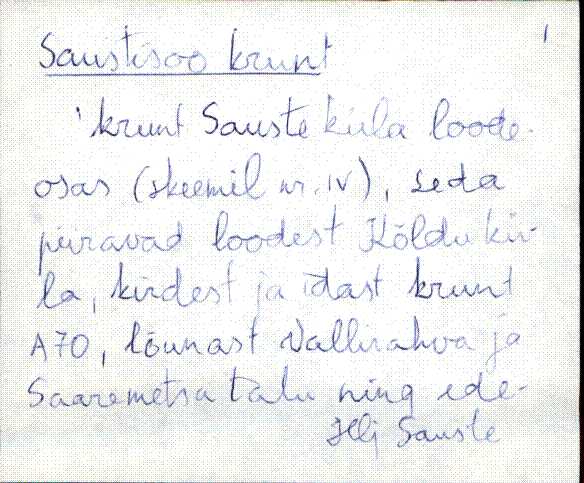 1
Saustisoo krunt
'krunt Sauste küla loode-
osas (skeemil nr. IV), seda
piiravad loodest Kõldu kü-
la, kirdest ja idast krunt
A70, lõunast Vallirahva ja
Saaremetsa talu ning ede-
Hlj Sauste